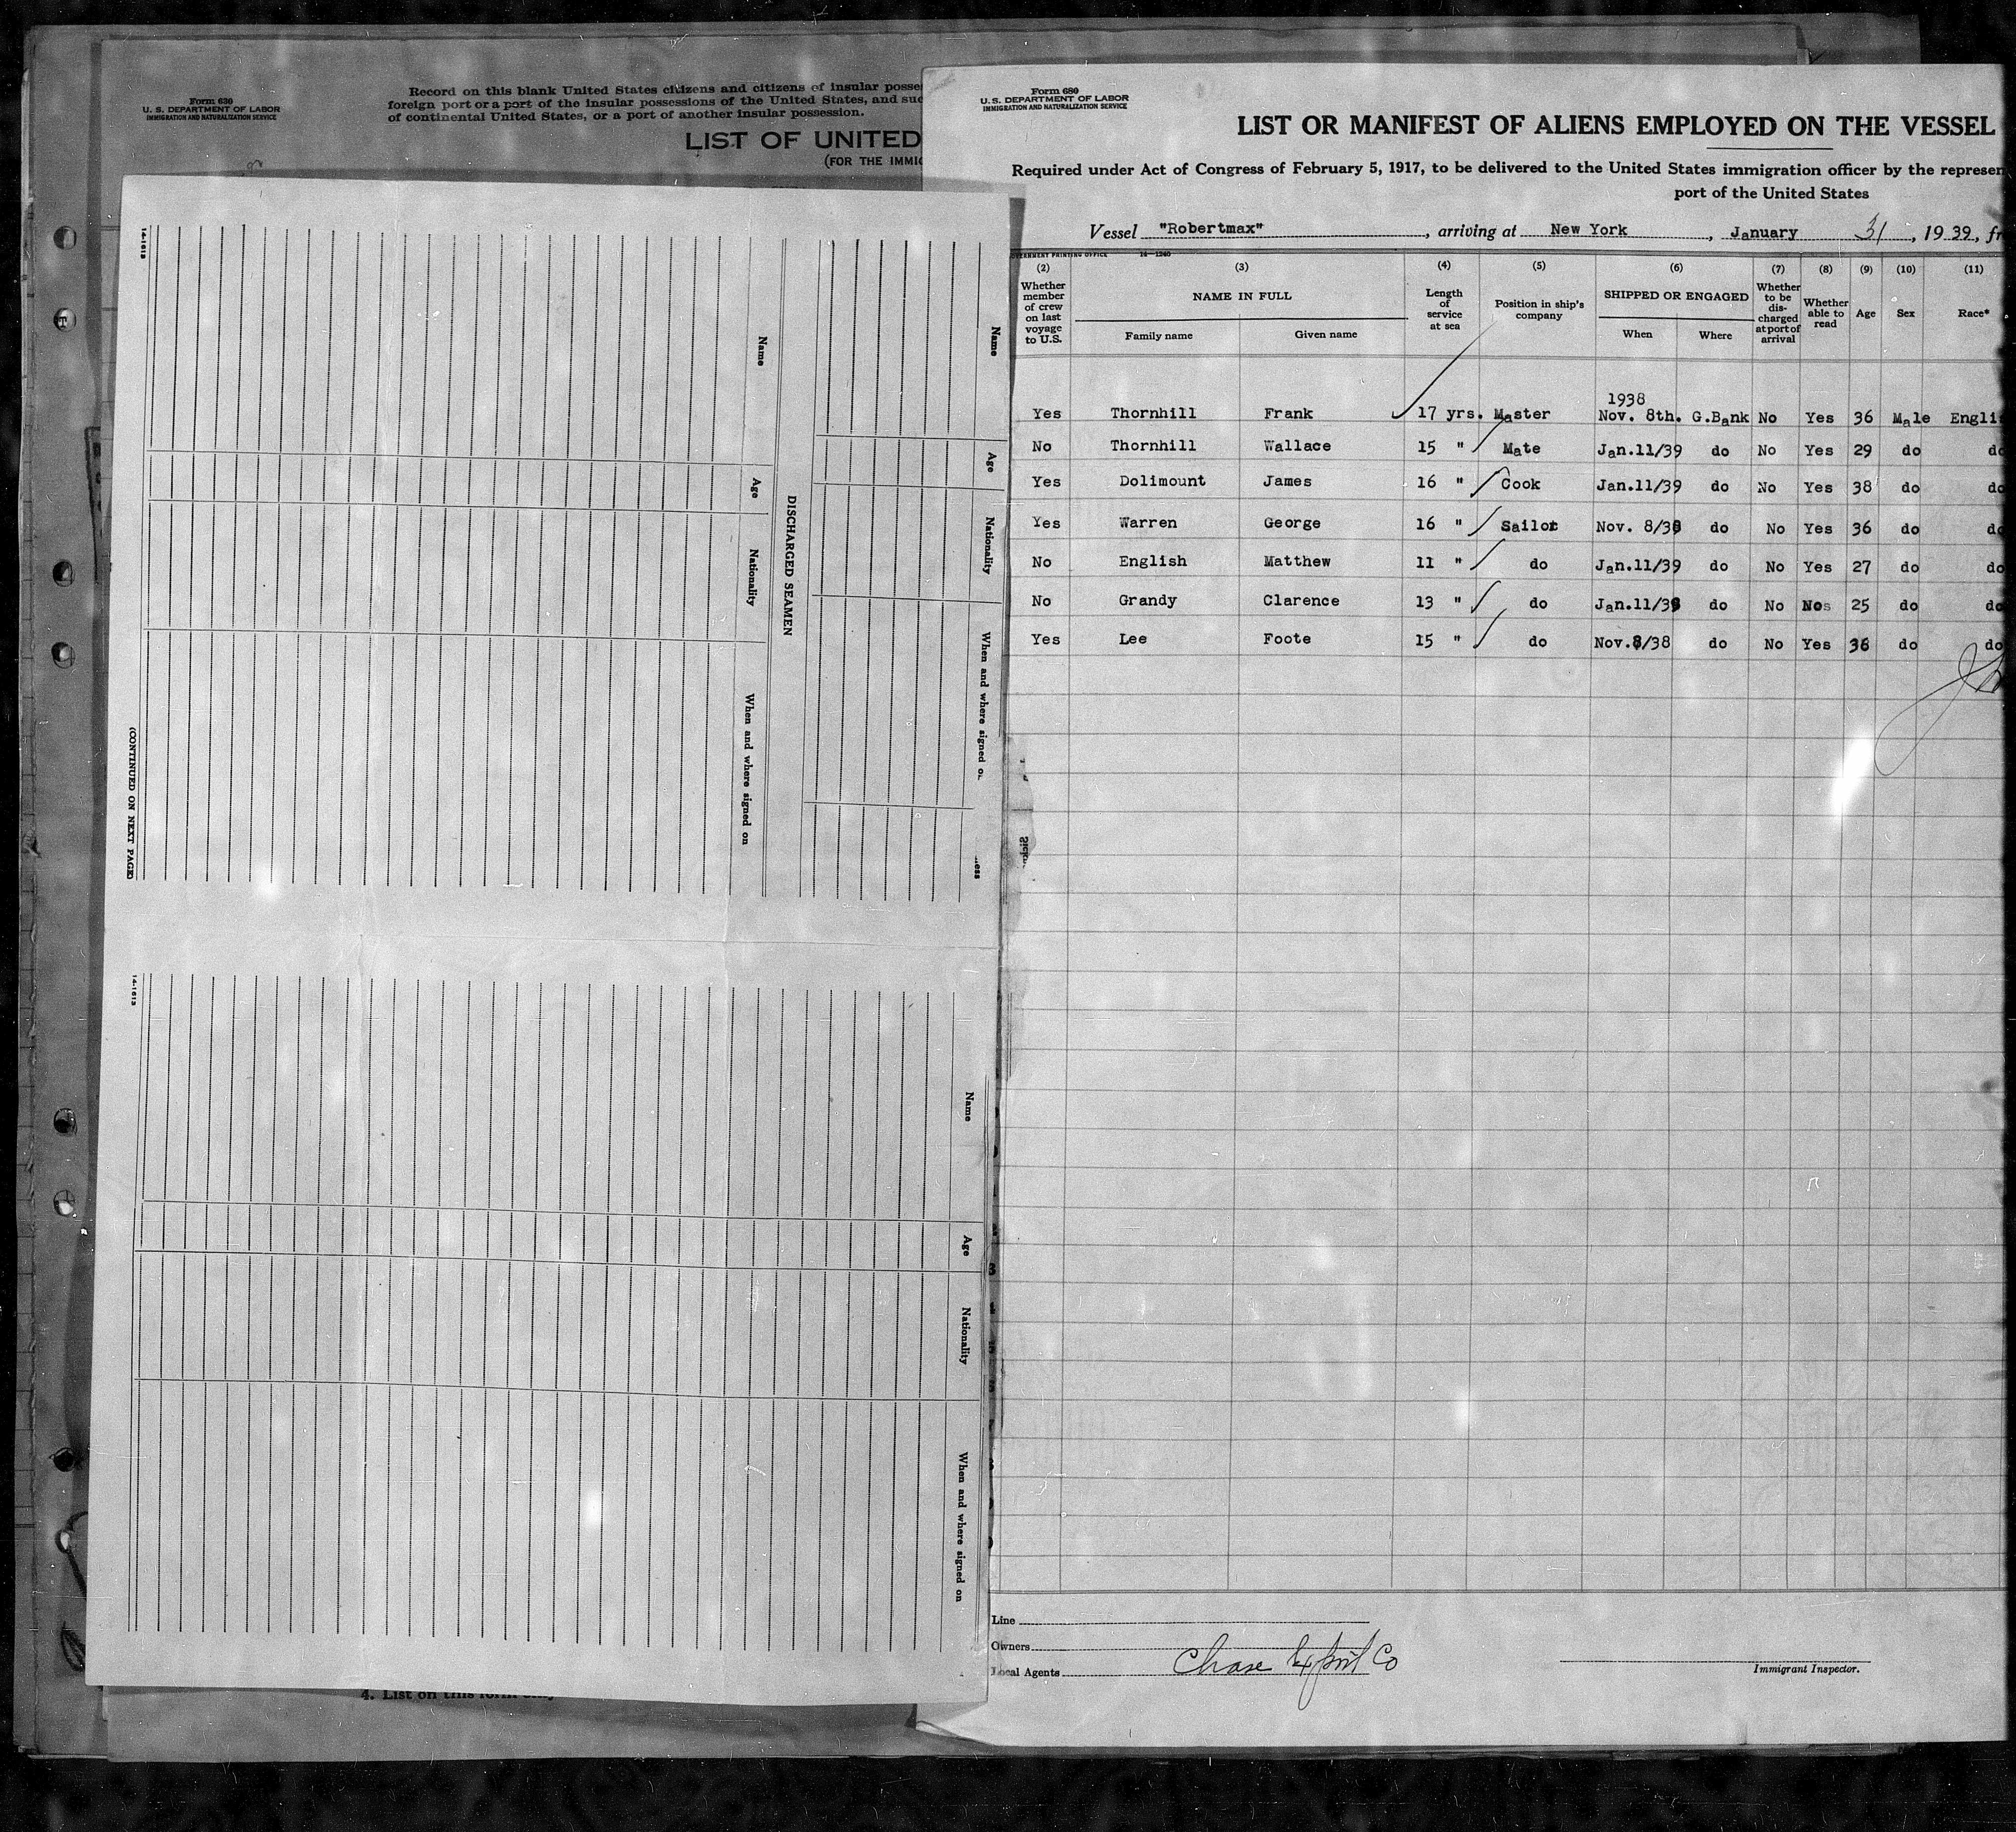 Form 630
U. S. DEPARTMENT OF LABOR
IMMIGRATION AND NATURALIZATION SERVICE
Record on this blank United States citizens and citizens of insular posse
foreign port or a port of the insular possessions of the United States, and suc
of continental United States, or a port of another insular possession.
LIST OF UNITED
(FOR THE IMMIG
14-1613
Name
Age
Nationality
When and where signed o
ess
DISCHARGED SEAMEN
Name
Age
Nationality
When and where signed on
(CONTINUED ON NEXT PAGE)
14-1613
Name
Age
Nationality
When and where signed on
4. List on this form only
Form 680
U. S. DEPARTMENT OF LABOR
IMMIGRATION AND NATURALIZATION SERVICE
LIST OR MANIFEST OF ALIENS EMPLOYED ON THE VESSEL
Required under Act of Congress of February 5, 1917, to be delivered to the United States immigration officer by the represen
port of the United States
Vessel "Robertmax", arriving at New York, January 31, 1939, fr
ERNMENT PRINTING OFFICE 14—1240
(2) (3) (4) (5) (6) (7) (8) (9) (10) (11)
Whether member of crew on last voyage to U.S.
NAME IN FULL
Family name Given name
Length of service at sea
Position in ship's company
SHIPPED OR ENGAGED
When Where
Whether to be dis-charged at port of arrival
Whether able to read
Age
Sex
Race*
1938
Yes Thornhill Frank 17 yrs. Master Nov. 8th. G.Bank No Yes 36 Male Engli
No Thornhill Wallace 15 " Mate Jan.11/39 do No Yes 29 do do
Yes Dolimount James 16 " Cook Jan.11/39 do No Yes 38 do do
Yes Warren George 16 " Sailor Nov. 8/38 do No Yes 36 do do
No English Matthew 11 " do Jan.11/39 do No Yes 27 do do
No Grandy Clarence 13 " do Jan.11/39 do No No 25 do do
Yes Lee Foote 15 " do Nov.8/38 do No Yes 36 do do
Line
Owners
Local Agents Chase Export Co
Immigrant Inspector.